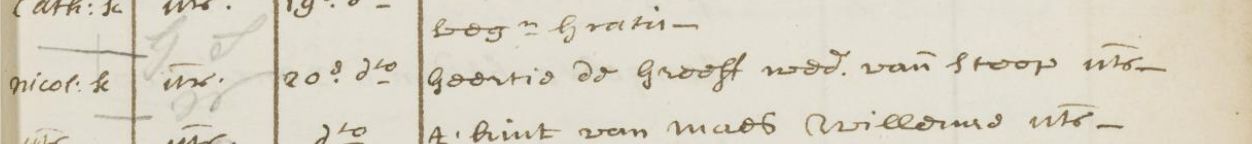 Cath: k uts. 19e. d
begn gratis
nicol: k uts. 20e. dto Geertie de Greeff wed. van Stoop uts
uts uts dto 't kint van Maes Willemse uts